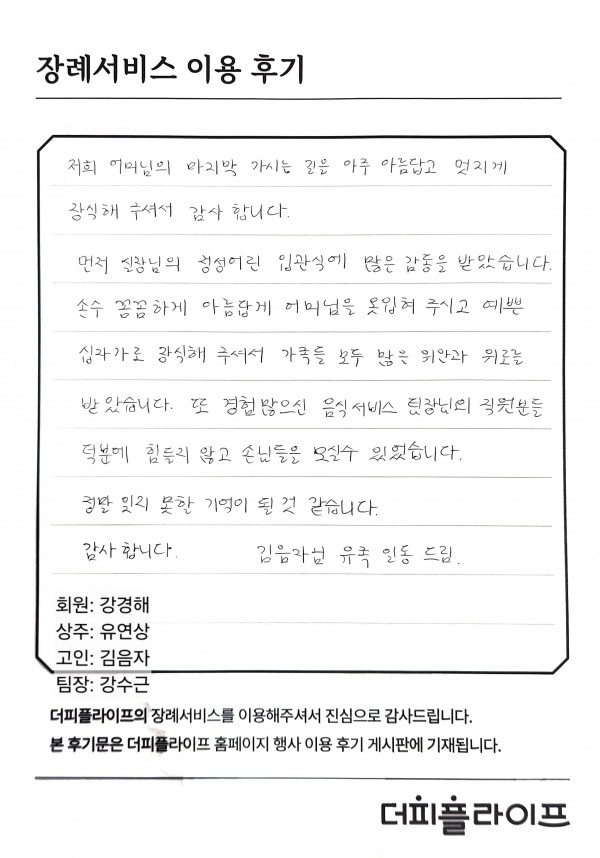 장례서비스 이용 후기
저희 어머님의 마지막 가시는 길을 아주 아름답고 멋지게
장식해 주셔서 감사 합니다.
먼저 실장님의 정성어린 입관식에 많은 감동을 받았습니다.
손수 꼼꼼하게 아름답게 어머님을 옷입혀 주시고 예쁜
십자가로 장식해 주셔서 가족들 모두 많은 위안과 위로를
받았습니다. 또 경험많으신 음식서비스 팀장님의 직원분들
덕분에 힘들지 않고 손님들을 모실수 있었습니다.
정말 잊지 못할 기억이 될 것 같습니다.
감사합니다. 김음자님 유족 일동 드림.
회원: 강경해
상주: 유연상
고인: 김음자
팀장: 강수근
더피플라이프의 장례서비스를 이용해주셔서 진심으로 감사드립니다.
본 후기문은 더피플라이프 홈페이지 행사 이용 후기 게시판에 기재됩니다.
더피플라이프